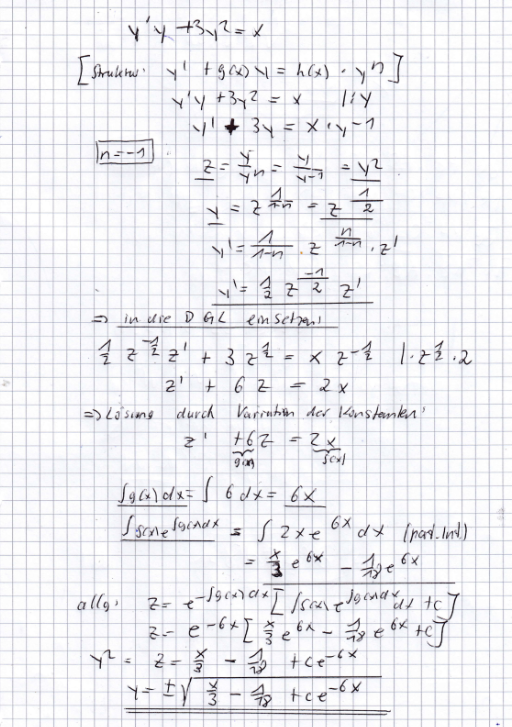 y'y + 3y² = x
[Struktur: y' + g(x) y = h(x) · yⁿ]
y'y + 3y² = x   | : y
y' + 3y = x · y⁻¹
n = -1
z = y/yⁿ = y/y⁻¹ = y²
y = z^(1/(1-n)) = z^(1/2)
y' = 1/(1-n) · z^(n/(1-n)) · z'
y' = 1/2 z^(-1/2) z'
⇒ in die DGL einsetzen:
1/2 z^(-1/2) z' + 3 z^(1/2) = x z^(-1/2)   | · z^(1/2) · 2
z' + 6z = 2x
⇒ Lösung durch Variation der Konstanten:
z' +6z = 2x
g(x) s(x)
∫g(x) dx = ∫ 6 dx = 6x
∫s(x) e^(∫g(x)dx) dx = ∫ 2x e^(6x) dx (part. Int)
= x/3 e^(6x) - 1/18 e^(6x)
allg: z = e^(-∫g(x)dx) [∫s(x) e^(∫g(x)dx) dx + c]
z = e^(-6x) [x/3 e^(6x) - 1/18 e^(6x) + c]
y² = z = x/3 - 1/18 + c e^(-6x)
y = ±√(x/3 - 1/18 + c e^(-6x))